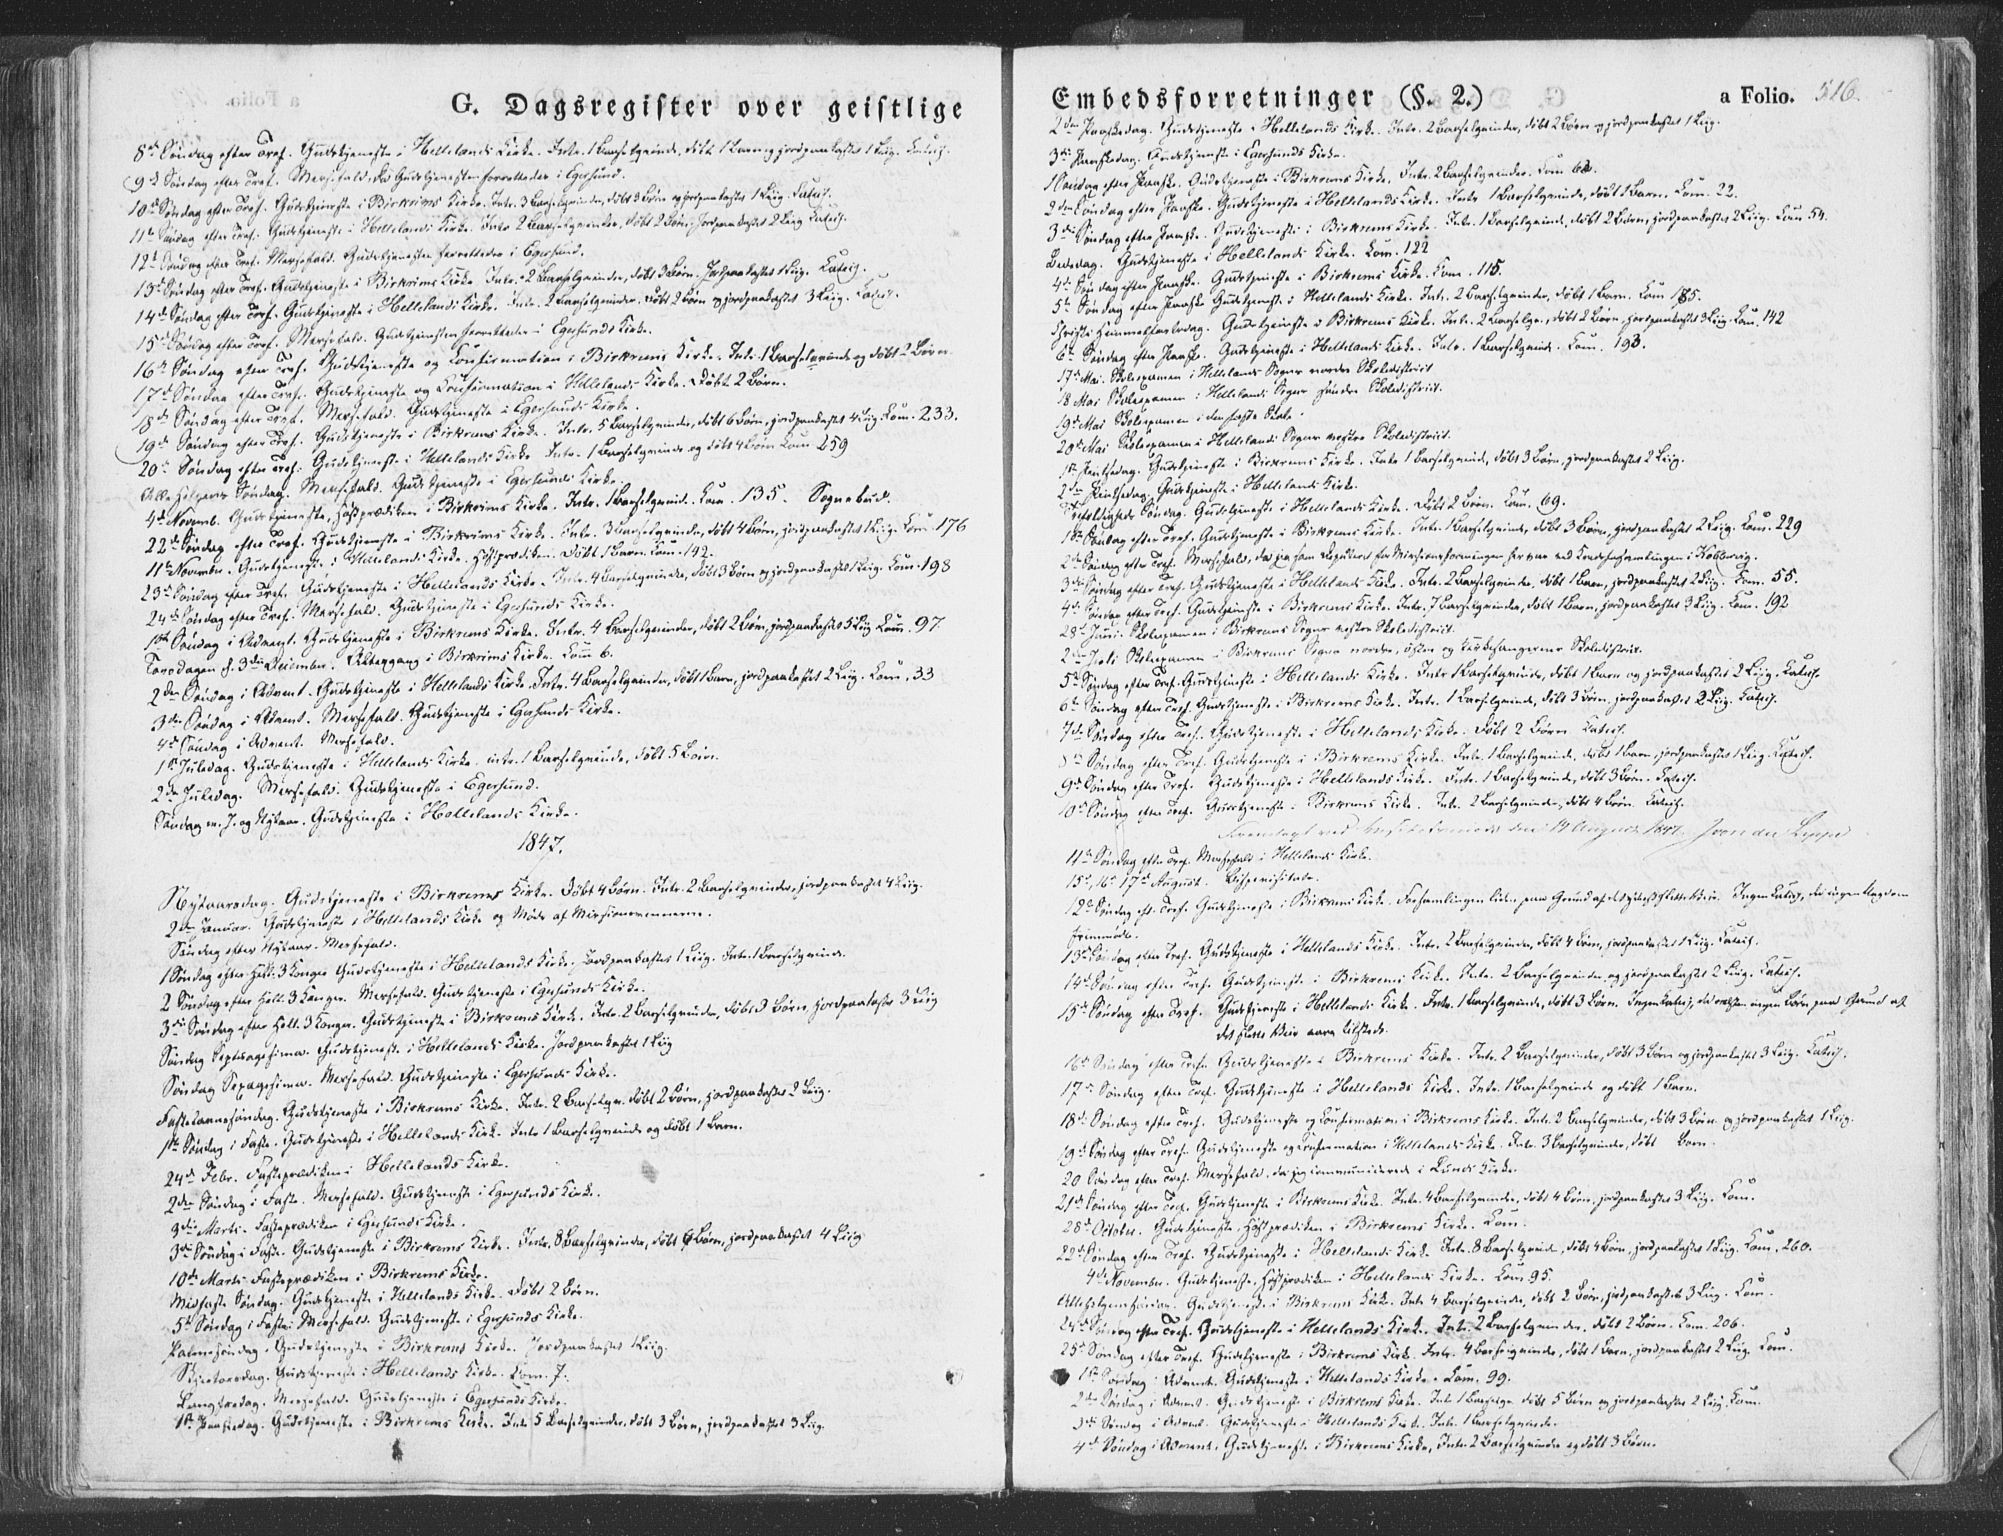 G. Dagsregister over geistlige
8de Søndag efter Tref. Gudstjeneste i Hellelands Kirke. Intr. 1 Barselqvinde, døbt 1 Barn og jordpaakastet 1 Liig. Catech.
9de Søndag efter Tref. Messefald, da Gudstjenesten forrettedes i Egersund.
10de Søndag efter Tref. Gudstjeneste i Birkrems Kirke. Intr. 3 Barselqvinder, døbt 3 Børn og jordpaakastet 1 Liig. Catech.
11te Søndag efter Tref. Gudstjeneste i Hellelands Kirke. Intr. 2 Barselqvinder, døbt 2 Børn, jordpaakastet 2 Liig. Catech.
12te Søndag efter Tref. Messefald. Gudstjenesten forrettedes i Egersund.
13de Søndag efter Tref. Gudstjeneste i Birkrems Kirke. Intr. 2 Barselqvinder, døbt 3 Børn. Jordpaakastet 1 Liig. Catech.
14de Søndag efter Tref. Gudstjeneste i Hellelands Kirke. Intr. 2 Barselqvinder. Døbt 2 Børn og jordpaakastet 3 Liig. Catech.
15de Søndag efter Tref. Messefald. Gudstjenesten forrettedes i Egersunds Kirke.
16de Søndag efter Tref. Gudstjeneste og Confirmation i Birkrems Kirke. Intr. 1 Barselqvinde og døbt 2 Børn.
17de Søndag efter Tref. Gudstjeneste og Confirmation i Hellelands Kirke. Døbt 2 Børn.
18de Søndag efter Tref. Messefald. Gudstjeneste i Egersunds Kirke.
19de Søndag efter Tref. Gudstjeneste i Birkrems Kirke. Intr. 5 Barselqvinder, døbt 6 Børn, jordpaakastet 4 Liig. Com. 233.
20de Søndag efter Tref. Gudstjeneste i Hellelands Kirke. Intr. 1 Barselqvinde og døbt 4 Børn. Com 259
Alle Helgens Søndag. Messefald. Gudstjeneste i Egersunds Kirke.
4de Novemb. Gudstjeneste, Høstprædiken i Birkrems Kirke. Intr. 1 Barselqvind. Com. 135. Sognebud.
22de Søndag efter Tref. Gudstjeneste i Birkrems Kirke. Intr. 3 Barselqvinder, døbt 4 Børn, jordpaakastet 1 Liig. Com. 176
11te November. Gudstjeneste i Hellelands Kirke. Høstprædiken. Døbt 1 Barn. Com. 142.
23de Søndag efter Tref. Gudstjeneste i Hellelands Kirke. Intr. 4 Barselqvinder, døbt 3 Børn og jordpaakastet 1 Liig. Com. 198
24de Søndag efter Tref. Messefald. Gudstjeneste i Egersunds Kirke.
1ste Søndag i Advent. Gudstjeneste i Birkrems Kirke. Intr. 4 Barselqvinder, døbt 2 Børn, jordpaakastet 5 Liig. Com. 97
Torsdagen d. 3die December. Altergang i Birkrems Kirke. Com 6.
2den Søndag i Advent. Gudstjeneste i Hellelands Kirke. Intr. 4 Barselqvinder, døbt 1 Barn, jordpaakastet 2 Liig. Com. 33
3die Søndag i Advent. Messefald. Gudstjeneste i Egersunds Kirke.
4de Søndag i Advent. Messefald.
1ste Juledag. Gudstjeneste i Hellelands Kirke. intr. 1 Barselqvinde, døbt 5 Børn.
2den Juledag. Messefald. Gudstjeneste i Egersund.
Søndag m. J. og Nytaar. Gudstjeneste i Hellelands Kirke.
1847.
Nytaarsdag. Gudstjeneste i Birkrems Kirke. Døbt 4 Børn. Intr. 2 Barselqvinder, jordpaakastet 4 Liig.
2den Januar. Gudstjeneste i Hellelands Kirke og Møde af Missionsvennerne.
Søndag efter Nytaar. Messefald.
1 Søndag efter Hell. 3 Konger Gudstjeneste i Hellelands Kirke. Jordpaakastet 1 Liig. Intr. 1 Barselqvinde.
2 Søndag efter Hell. 3 Konger. Messefald. Gudstjeneste i Egersunds Kirke.
3die Søndag efter Hell. 3 Konger. Gudstjeneste i Birkrems Kirke. Intr. 2 Barselqvinder, døbt 3 Børn, jordpaakastet 3 Liig
Søndag Septuagesima. Gudstjeneste i Hellelands Kirke. Jordpaakastet 1 Liig
Søndag Sexagesima. Messefald. Gudstjeneste i Egersunds Kirke.
Fastelavnssøndag. Gudstjeneste i Birkrems Kirke. Intr. 2 Barselqv. døbt 2 Børn, jordpaakastet 2 Liig.
1ste Søndag i Faste. Gudstjeneste i Hellelands Kirke. Intr. 1 Barselqvinde og døbt 1 Barn.
24de Febr. Fasteprædiken i Hellelands Kirke.
2den Søndag i Faste. Messefald. Gudstjeneste i Egersunds Kirke.
3die Marts. Fasteprædiken i Egersunds Kirke.
3die Søndag i Faste. Gudstjeneste i Birkrems Kirke. Intr. 8 Barselqvinder, døbt 6 Børn, jordpaakastet 4 Liig
10de Marts Fasteprædiken i Birkrems Kirke.
Midfaste Søndag. Gudstjeneste i Hellelands Kirke. Døbt 2 Børn.
5te Søndag i Faste. Messefald. Gudstjeneste i Egersunds Kirke.
Palmesøndag. Gudstjeneste i Birkrems Kirke. Jordpaakastet 1 Liig.
Skjertorsdag. Gudstjeneste i Hellelands Kirke. Com. 7.
Langfredag. Messefald. Gudstjeneste i Egersunds Kirke.
1ste Paaskedag. Gudstjeneste i Birkrems Kirke. Intr. 5 Barselqvinder, døbt 3 Børn, jordpaakastet 3 Liig.
Embedsforretninger (§. 2.) a Folio. 516.
2den Paaskedag. Gudstjeneste i Hellelands Kirke. Intr. 2 Barselqvinder, døbt 2 Børn og jordpaakastet 1 Liig.
3die Paaskedag. Gudstjeneste i Egersunds Kirke.
1 Søndag efter Paaske. Gudstjeneste i Birkrems Kirke, Intr. 2 Barselqvinder. Com 62.
2den Søndag efter Paaske. Gudstjeneste i Hellelands Kirke. Intr. 1 Barselqvinde, døbt 1 Barn. Com. 22.
3die Søndag efter Paaske. Gudstjeneste i Birkrems Kirke. Intr. 1 Barselqvind, døbt 2 Børn, jordpaakastet 2 Liig. Com 54.
Bededag. Gudstjeneste i Hellelands Kirke. Com. 122
4de Søndag efter Paaske. Gudstjeneste i Birkrems Kirke. Com. 115.
5te Søndag efter Paaske Gudstjeneste i Hellelands Kirke. Intr. 2 Barselqvinder, døbt 1 Barn. Com 185.
Christi Himmelfartsdag. Gudstjeneste i Birkrems Kirke. Intr. 2 Barselqv., døbt 2 Børn, jordpaakastet 3 Liig. Com. 142
6te Søndag efter Paaske. Gudstjeneste i Hellelands Kirke. Intr. 1 Barselqvind. Com. 193.
17de Mai. Skoleexamen i Hellelands Sogns nordre Skoledistrict
18 Mai Skoleexamen i Hellelands Sogns søndre Skoledistrict.
19de Mai Skoleexamen i den faste Skole.
20de Mai. Skoleexamen i Hellelands Sogns vestre Skoledistrict.
1ste Pintsedag. Gudstjeneste i Birkrems Kirke. Intr. 1 Barselqvind, døbt 3 Børn, jordpaakastet 2 Liig.
2den Pintsedag. Gudstjeneste i Hellelands Kirke.
Trefoldigheds Søndag. Gudstjeneste i Hellelands Kirke. Døbt 2 Børn. Com. 69.
1ste Søndag efter Tref. Gudstjeneste i Birkrems Kirke. Intr. 1 Barselqvinde, døbt 3 Børn, jordpaakastet 2 Liig. Com. 229
2den Søndag efter Tref. Messefald, da jeg som Deputeret for Missionsforeningen her var ved Kredsforsamlingen i
3die Søndag efter Tref. Gudstjeneste i Hellelands Kirke. Intr. 2 Barselqvinder, døbt 1 Barn, jordpaakastet 2 Liig. Com. 55.
4de Søndag efter Tref. Gudstjeneste i Birkrems Kirke. Intr. 7 Barselqvinder, døbt 1 Barn, jordpaakastet 3 Liig. Com. 192
28de Juni. Skoleexamen i Birkrems Sogns vestre Skoledistrict.
2den Juli Skoleexamen i Birkrems Sogns nordre, østre og Kirkesangerens Skoledistrict.
5te Søndag efter Tref. Gudstjeneste i Hellelands Kirke. Intr. 1 Barselqvinde, døbt 1 Barn og jordpaakastet 2 Liig. Catech.
6te Søndag efter Tref. Gudstjeneste i Birkrems Kirke. Intr. 1 Barselqvinde, døbt 3 Børn, jordpaakastet 2 Liig. Catech.
7de Søndag efter Tref. Gudstjeneste i Hellelands Kirke. Døbt 2 Børn Catech.
8de Søndag efter Tref. Gudstjeneste i Birkrems Kirke. Intr. 1 Barselqvinde, døbt 1 Barn, jordpaakastet 1 Liig. Catech.
9de Søndag efter Tref. Gudstjeneste i Hellelands Kirke. Intr. 1 Barselqvinde, døbt 3 Børn. Catech.
10de Søndag efter Tref. Gudstjeneste i Birkrems Kirke. Intr. 2 Barselqvinder, døbt 4 Børn. Catech.
Foreviist ved den August 1847. J von der Lippe
11te Søndag efter Tref. Messefald i Hellelands Kirke.
15de, 16de 17de August. Bispevisitats.
12te Søndag eft. Tref. Gudstjeneste i Birkrems Kirke. Forsamlingen liden paa Grund af Ingen Catech., da ingen Ungdom
fremmødte.
13de Søndag efter Tref. Gudstjeneste i Hellelands Kirke. Intr. 2 Barselqvinder, døbt 4 Børn, jordpaakastet 1 Liig. Catech.
14de Søndag efter Tref. Gudstjeneste i Birkrems Kirke. Intr. 2 Barselqvinder og jordpaakastet 2 Liig. Catech.
15de Søndag efter Tref. Gudstjeneste i Hellelands Kirke. Intr. 1 Barselqvinde, døbt 3 Børn. Ingen Catech., da næsten ingen Børn paa Grund af
det slette Veir vare tilstede.
16de Søndag efter Tref. Gudstjeneste i Birkrems Kirke. Intr. 2 Barselqvinder, døbt 3 Børn og jordpaakastet 3 Liig. Catech.
17de Søndag efter Tref. Gudstjeneste i Hellelands Kirke. Intr. 1 Barselqvinde og døbt 1 Barn.
18de Søndag efter Tref. Gudstjeneste og Confirmation i Birkrems Kirke. Intr. 2 Barselqvinder, døbt 3 Børn og jordpaakastet 1 Liig.
19de Søndag efter Tref. Gudstjeneste og Confirmation i Hellelands Kirke. Intr. 3 Barselqvinder, døbt Børn.
20 Søndag efter Tref. Messefald, da jeg communicerede i Lunds Kirke.
21de Søndag efter Tref. Gudstjeneste i Birkrems Kirke. Intr. 4 Barselqvinder, døbt 4 Børn, jordpaakastet 3 Liig. Com.
28de October. Gudstjeneste, Høstprædiken i Birkrems Kirke. Com.
22de Søndag efter Tref. Gudstjeneste i Hellelands Kirke. Intr. 8 Barselqvind., døbt 4 Børn, jordpaakastet 1 Liig. Com. 260.
4de November. Gudstjeneste, Høstprædiken i Hellelands Kirke. Com. 95.
Allehelgenssøndag. Gudstjeneste i Birkrems Kirke. Intr. 4 Barselqvinder, døbt 2 Børn, jordpaakastet 3 Liig. Com.
24de Søndag efter Tref. Gudstjeneste i Hellelands Kirke. Intr. 2 Barselqvinder, døbt 2 Børn. Com. 206.
25de Søndag efter Tref. Gudstjeneste i Birkrems Kirke. Intr. 4 Barselqvinder, døbt 1 Barn, jordpaakastet 2 Liig. Com.
1ste Søndag i Advent. Gudstjeneste i Hellelands Kirke. Com. 99.
2den Søndag i Advent. Gudstjeneste i Birkrems Kirke. Intr. 1 Barselqv. døbt 5 Børn og jordpaakastet 2 Liig. Com.
3die Søndag i Advent. Gudstjeneste i Hellelands Kirke. Intr. 1 Barselqvinde.
4de Søndag i Advent. Gudstjeneste i Birkrems Kirke, Intr. 2 Barselqvinder og døbt 3 Børn.